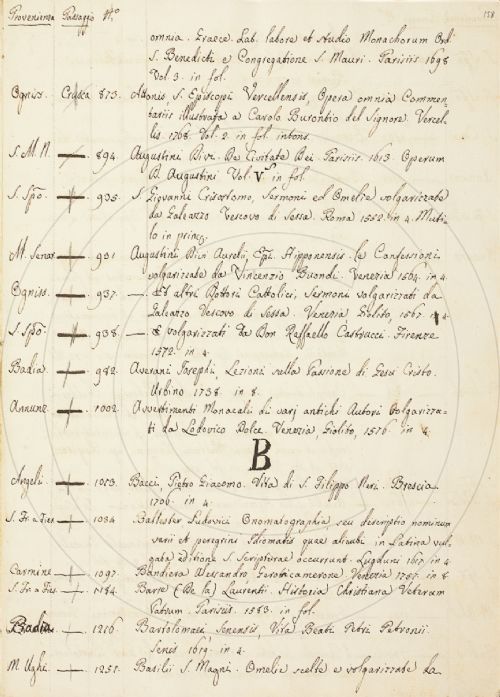 Provenienza Passaggio N.o
158
omnia. Graece Lat. labore et studio Monachorum Ord.
S. Benedicti e Congregatione S. Mauri. Parisiis 1698
Vol. 3. in fol.
Ogniss. Crusca 873. Attonis, S. Episcopi Vercellensis, Opera omnia Commen-
tariis illustrata a Carolo Burontio del Signore. Vercel-
lis 1768. Vol. 2. in fol. intons.
S. M. N. 894. Augustini Divi. De Civitate Dei. Parisiis. 1613. Operum
D. Augustini Vol. V.s in fol.
S. Spo. 935. S. Giovanni Crisostomo, Sermoni ed Omelie volgarizzate
da Galeazzo Vescovo di Sessa. Roma 1552. in 4. Muti-
lo in princ.
M. Senar 901. Augustini Divi Aurelii, Epi. Hipponensis. Le Confessioni
volgarizzate da Vincenzio Buondi. Venezia 1564. in 4.
Ogniss. 937. —. ed altri Dottori Cattolici, Sermoni volgarizzati da
Galeazzo Vescovo di Sessa. Venezia, Giolito, 1567. 4.
S. Spo. 938. —. volgarizzati da Don Raffaello Castrucci. Firenze
1572. in 4.
Badia 982. Averani Josephi, Lezioni sulla Passione di Gesù Cristo.
Urbino 1738. in 8.
Annunz. 1002. Avvertimenti Monacali di varj antichi Autori volgarizza-
ti da Lodovico Dolce. Venezia, Giolito, 1576. in 4.
B
Angeli 1013. Bacci, Pietro Giacomo. Vita di S. Filippo Neri. Brescia
1706. in 4.
S. Fr. a Fies. 1034. Ballester Ludovici Onomatographia, seu descriptio nominum
varii et peregrini Idiomatis quae alicubi in Latina vul-
gata editione S. Scripturae occurrunt. Lugduni 1617. in 4.
Carmine 1097. Bandiera Alessandro Gerotricamerone Venezia in 8
S. Fr. a Fies. 1184. Barre (De la) Laurentii. Historia Christiana Veterum
Patrum. Parisiis. 1583. in fol.
Badia 1216. Bartolomaei Senensis, Vita Beati Petri Petronii.
Senis 1619. in 4.
M. Ughi. 1251. Basilii S. Magni. Omelie scelte e volgarizzate da